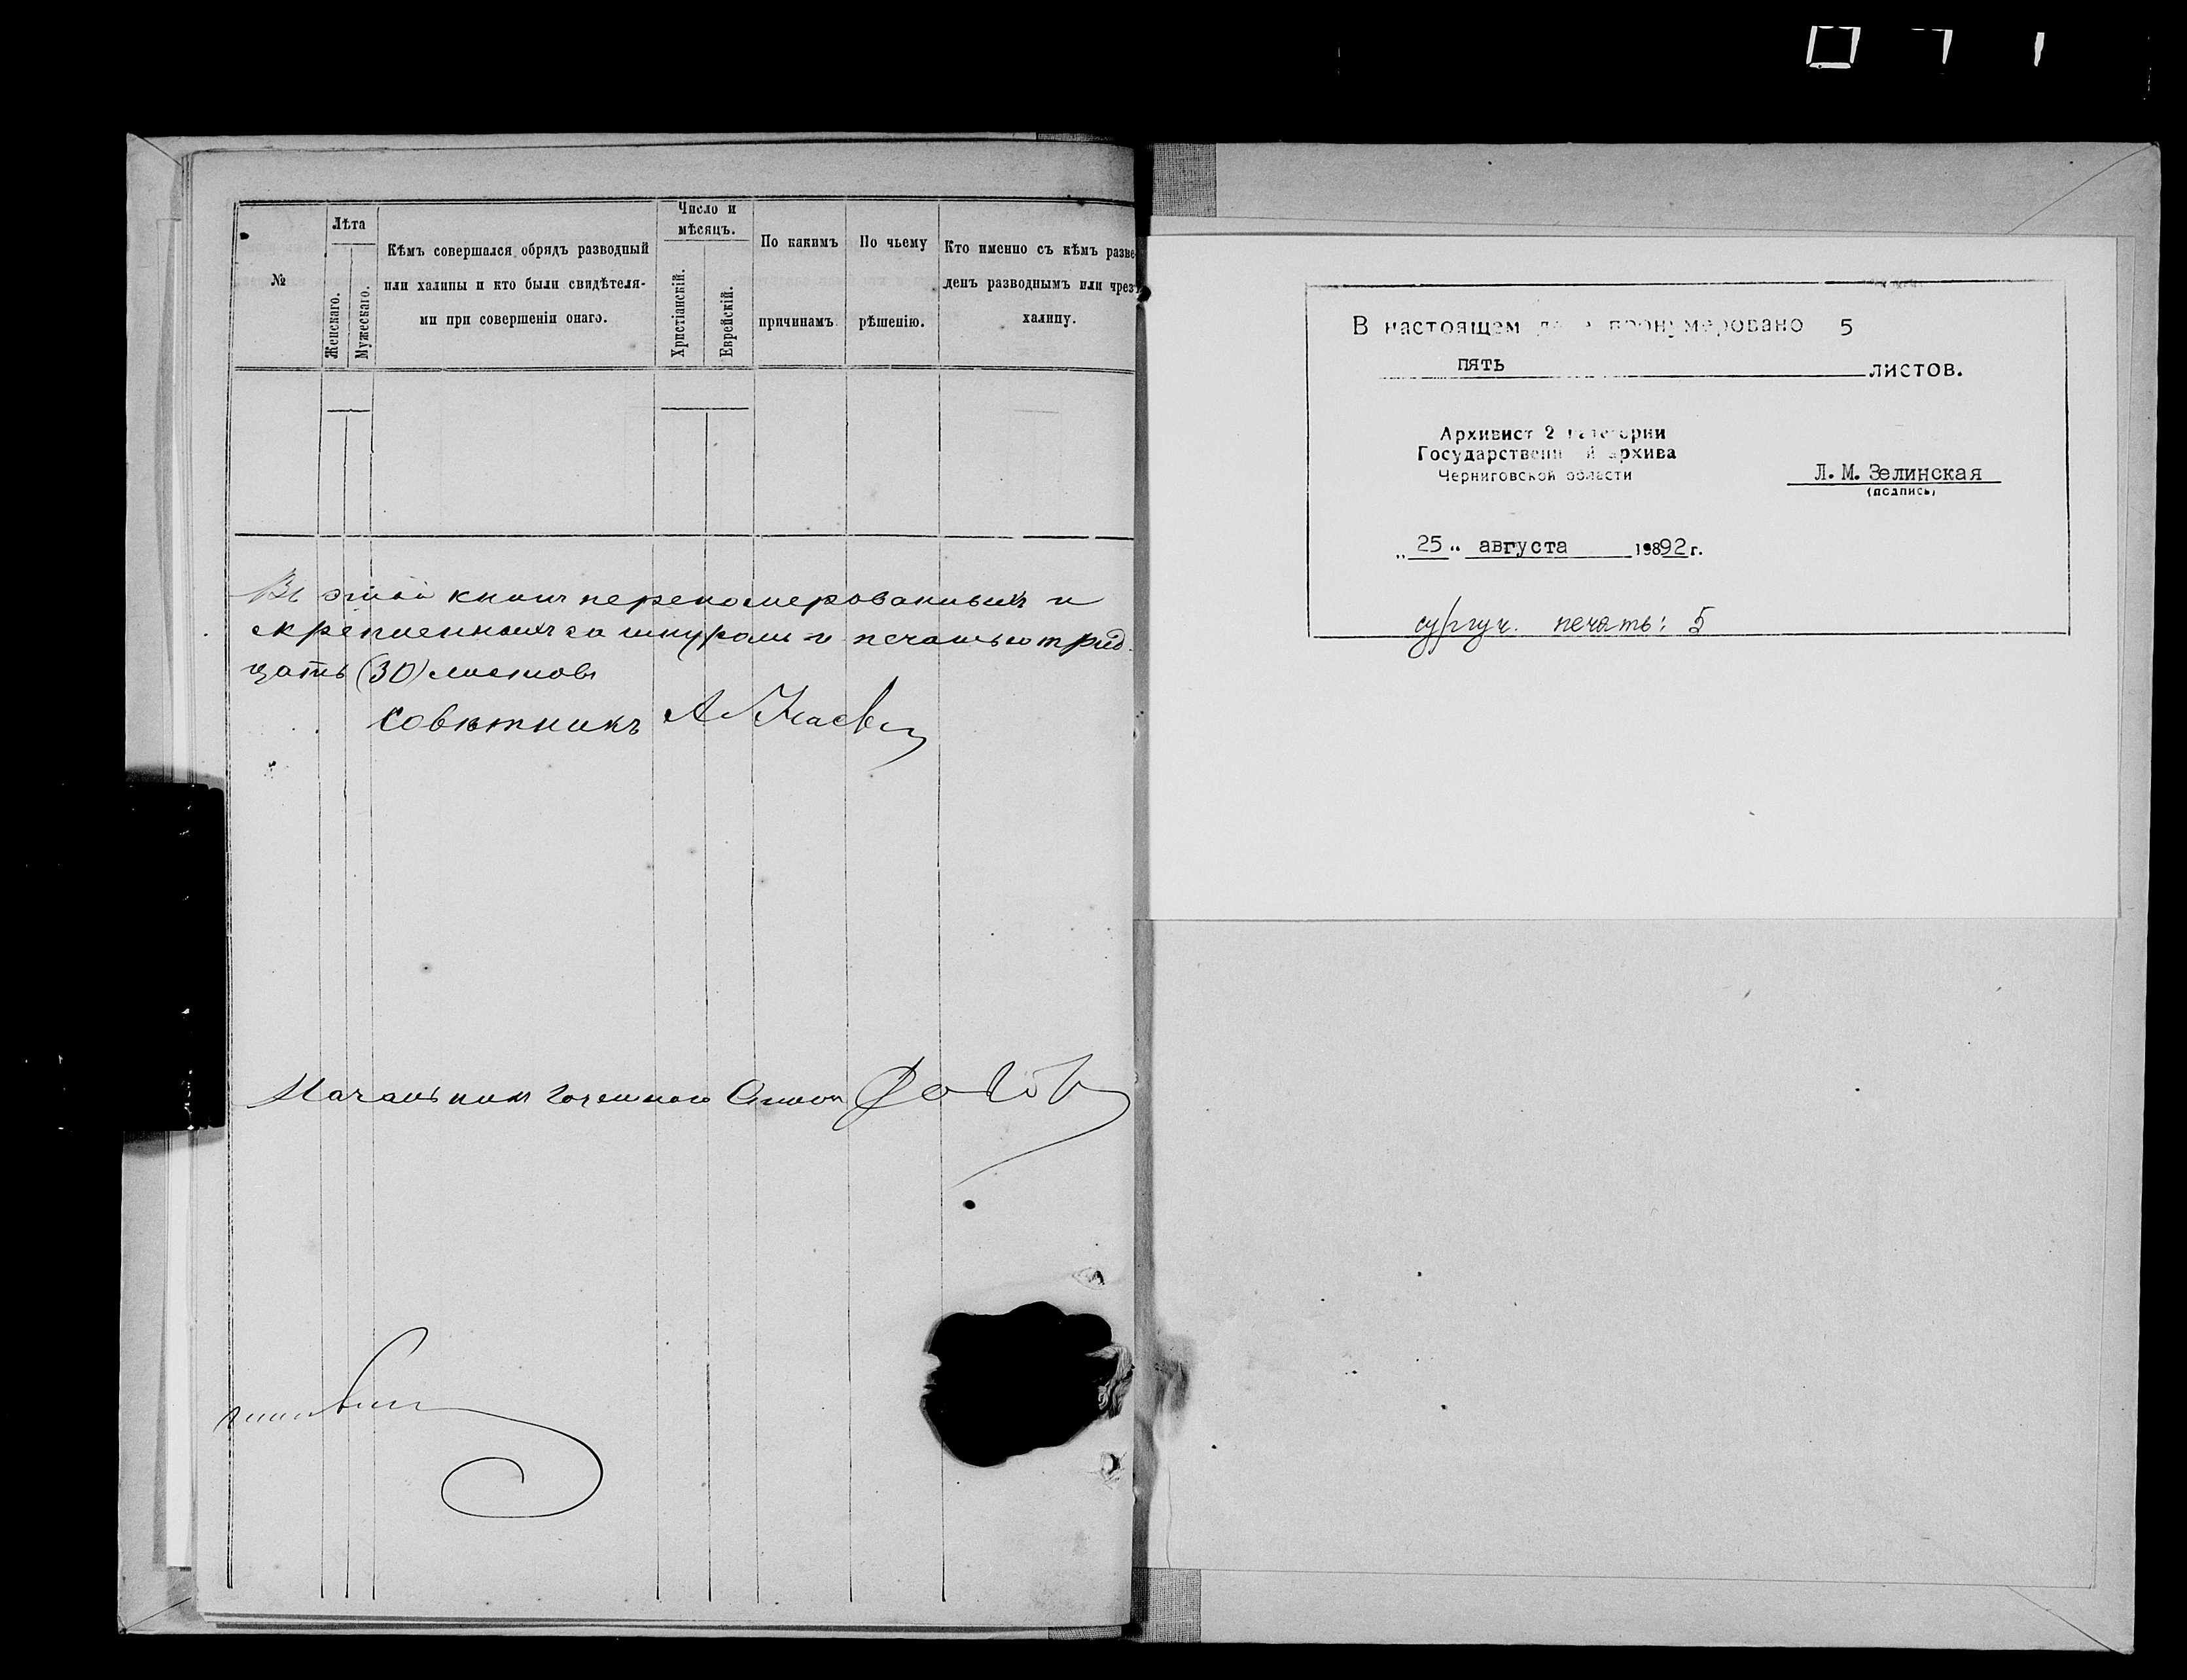 071
№
Лѣта
Женскаго.
Мужескаго.
Кѣмъ совершался обрядъ разводный
или халицы и кто были свидѣтеля-
ми при совершеніи онаго.
Число и
мѣсяцъ.
Христіанскій.
Еврейскій.
По какимъ
причинамъ
По чьему
рѣшенію.
Кто именно съ кѣмъ разве-
денъ разводнымъ или чрезъ
халицу.
Въ этой книгѣ перенумерованныхъ и
скрѣпленныхъ за шнуромъ и печатью трид-
цать (30) листовъ
Совѣтникъ А.
Начальникъ
В настоящем деле пронумеровано 5
пять листов.
Архивист 2 категории
Государственный архива
Черниговской области
Л.М.Зелинская
(подпись)
„25" августа 19892г.
сургуч. печать: 5